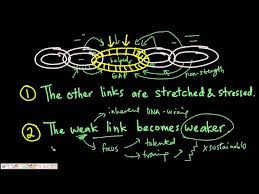 helped
GAP
non-strength
① The other links are stretched & stressed.
inherent DNA-wiring
② The weak link becomes weaker.
focus
talented
training
x sustainable